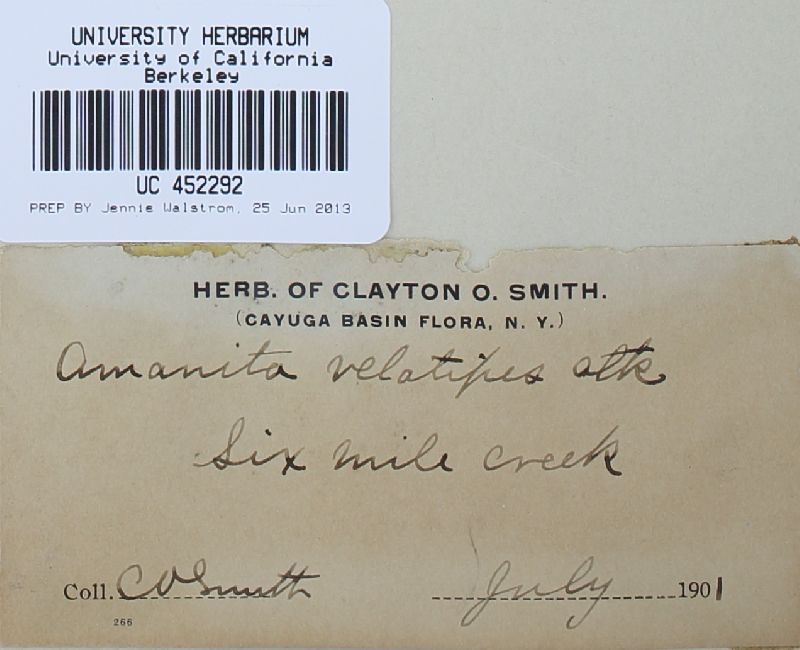 UNIVERSITY HERBARIUM
University of California
Berkeley
UC 452292
PREP BY Jennie Walstrom, 25 Jun 2013
HERB. OF CLAYTON O. SMITH.
(CAYUGA BASIN FLORA, N. Y.)
Amanita velatipes atk
Six mile creek
Coll. C O Smith July 1901
266